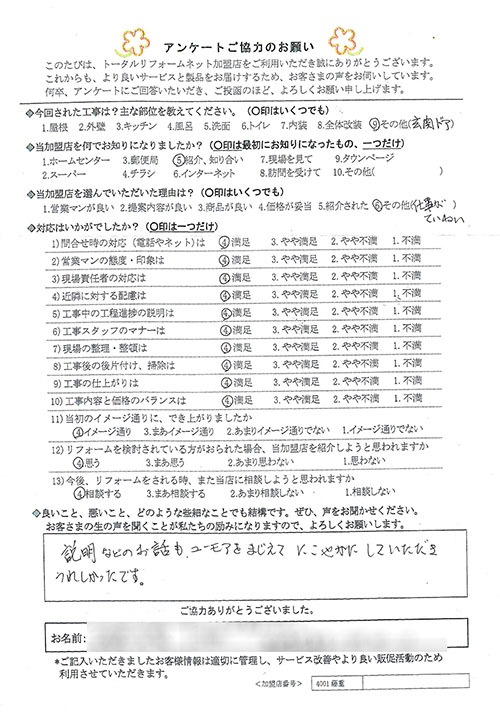 アンケートご協力のお願い
このたびは、トータルリフォームネット加盟店をご利用いただき誠にありがとうございます。
これからも、より良いサービスと製品をお届けするため、お客さまの声をお伺いしています。
何卒、アンケートにご回答いただいき、ご投函のほど、よろしくお願い申し上げます。
◆今回された工事は？主な部位を教えてください。（〇印はいくつでも）
1.屋根 2.外壁 3.キッチン 4.風呂 5.洗面 6.トイレ 7.内装 8.全体改装 ⑨その他(玄関ドア)
◆当加盟店を何でお知りになりましたか？（〇印は最初にお知りになったもの、一つだけ）
1.ホームセンター 3.郵便局 ⑤紹介、知り合い 7.現場を見て 9.タウンページ
2.スーパー 4.チラシ 6.インターネット 8.訪問を受けて 10.その他( )
◆当加盟店を選んでいただいた理由は？（〇印はいくつでも）
1.営業マンが良い 2.提案内容が良い 3.商品が良い 4.価格が妥当 5.紹介された ⑥その他(仕事が
ていねい
◆対応はいかがでしたか？（〇印は一つだけ）
1)問合せ時の対応（電話やネット）は ④満足 3.やや満足 2.やや不満 1.不満
2)営業マンの態度・印象は ④満足 3.やや満足 2.やや不満 1.不満
3)現場責任者の対応は ④満足 3.やや満足 2.やや不満 1.不満
4)近隣に対する配慮は ④満足 3.やや満足 2.やや不満 1.不満
5)工事中の工程進捗の説明は ④満足 3.やや満足 2.やや不満 1.不満
6)工事スタッフのマナーは ④満足 3.やや満足 2.やや不満 1.不満
7)現場の整理・整頓は ④満足 3.やや満足 2.やや不満 1.不満
8)工事後の後片付け、掃除は ④満足 3.やや満足 2.やや不満 1.不満
9)工事の仕上がりは ④満足 3.やや満足 2.やや不満 1.不満
10)工事内容と価格のバランスは ④満足 3.やや満足 2.やや不満 1.不満
11)当初のイメージ通りに、でき上がりましたか
④イメージ通り 3.まあイメージ通り 2.あまりイメージ通りでない 1.イメージ通りでない
12)リフォームを検討されている方がおられた場合、当加盟店を紹介しようと思われますか
④思う 3.まあ思う 2.あまり思わない 1.思わない
13)今後、リフォームをされる時、また当店に相談しようと思われますか
④相談する 3.まあ相談する 2.あまり相談しない 1.相談しない
◆良いこと、悪いこと、どのような些細なことでも結構です。ぜひ、声をお聞かせください。
お客さまの生の声を聞くことが私たちの励みになりますので、よろしくお願いします。
説明などのお話も、ユーモアをまじえて にこやかに していただき
うれしかったです。
ご協力ありがとうございました。
お名前:
*ご記入いただきましたお客様情報は適切に管理し、サービス改善やより良い販促活動のため
利用させていただきます。
<加盟店番号> 4001藤重